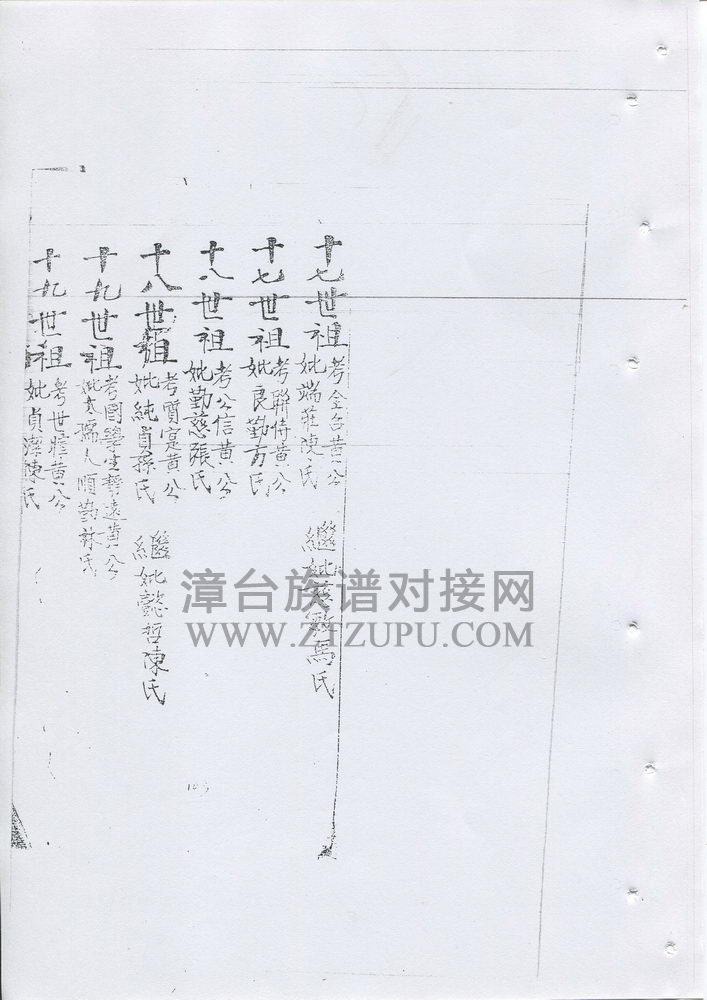 十七世祖
考金台黃公
妣端莊陳氏
繼妣慈敏馬氏
十七世祖
考聯侍黃公
妣良勤方氏
十八世祖
考公信黃公
妣勤慈張氏
十八世祖
考質寔黃公
妣純貞孫氏
繼妣懿哲陳氏
十九世祖
考國學生 遠黃公
妣 孺人順勤 氏
十九世祖
考世 黃公
妣貞潔陳氏
漳台族谱对接网
WWW.ZTZUPU.COM